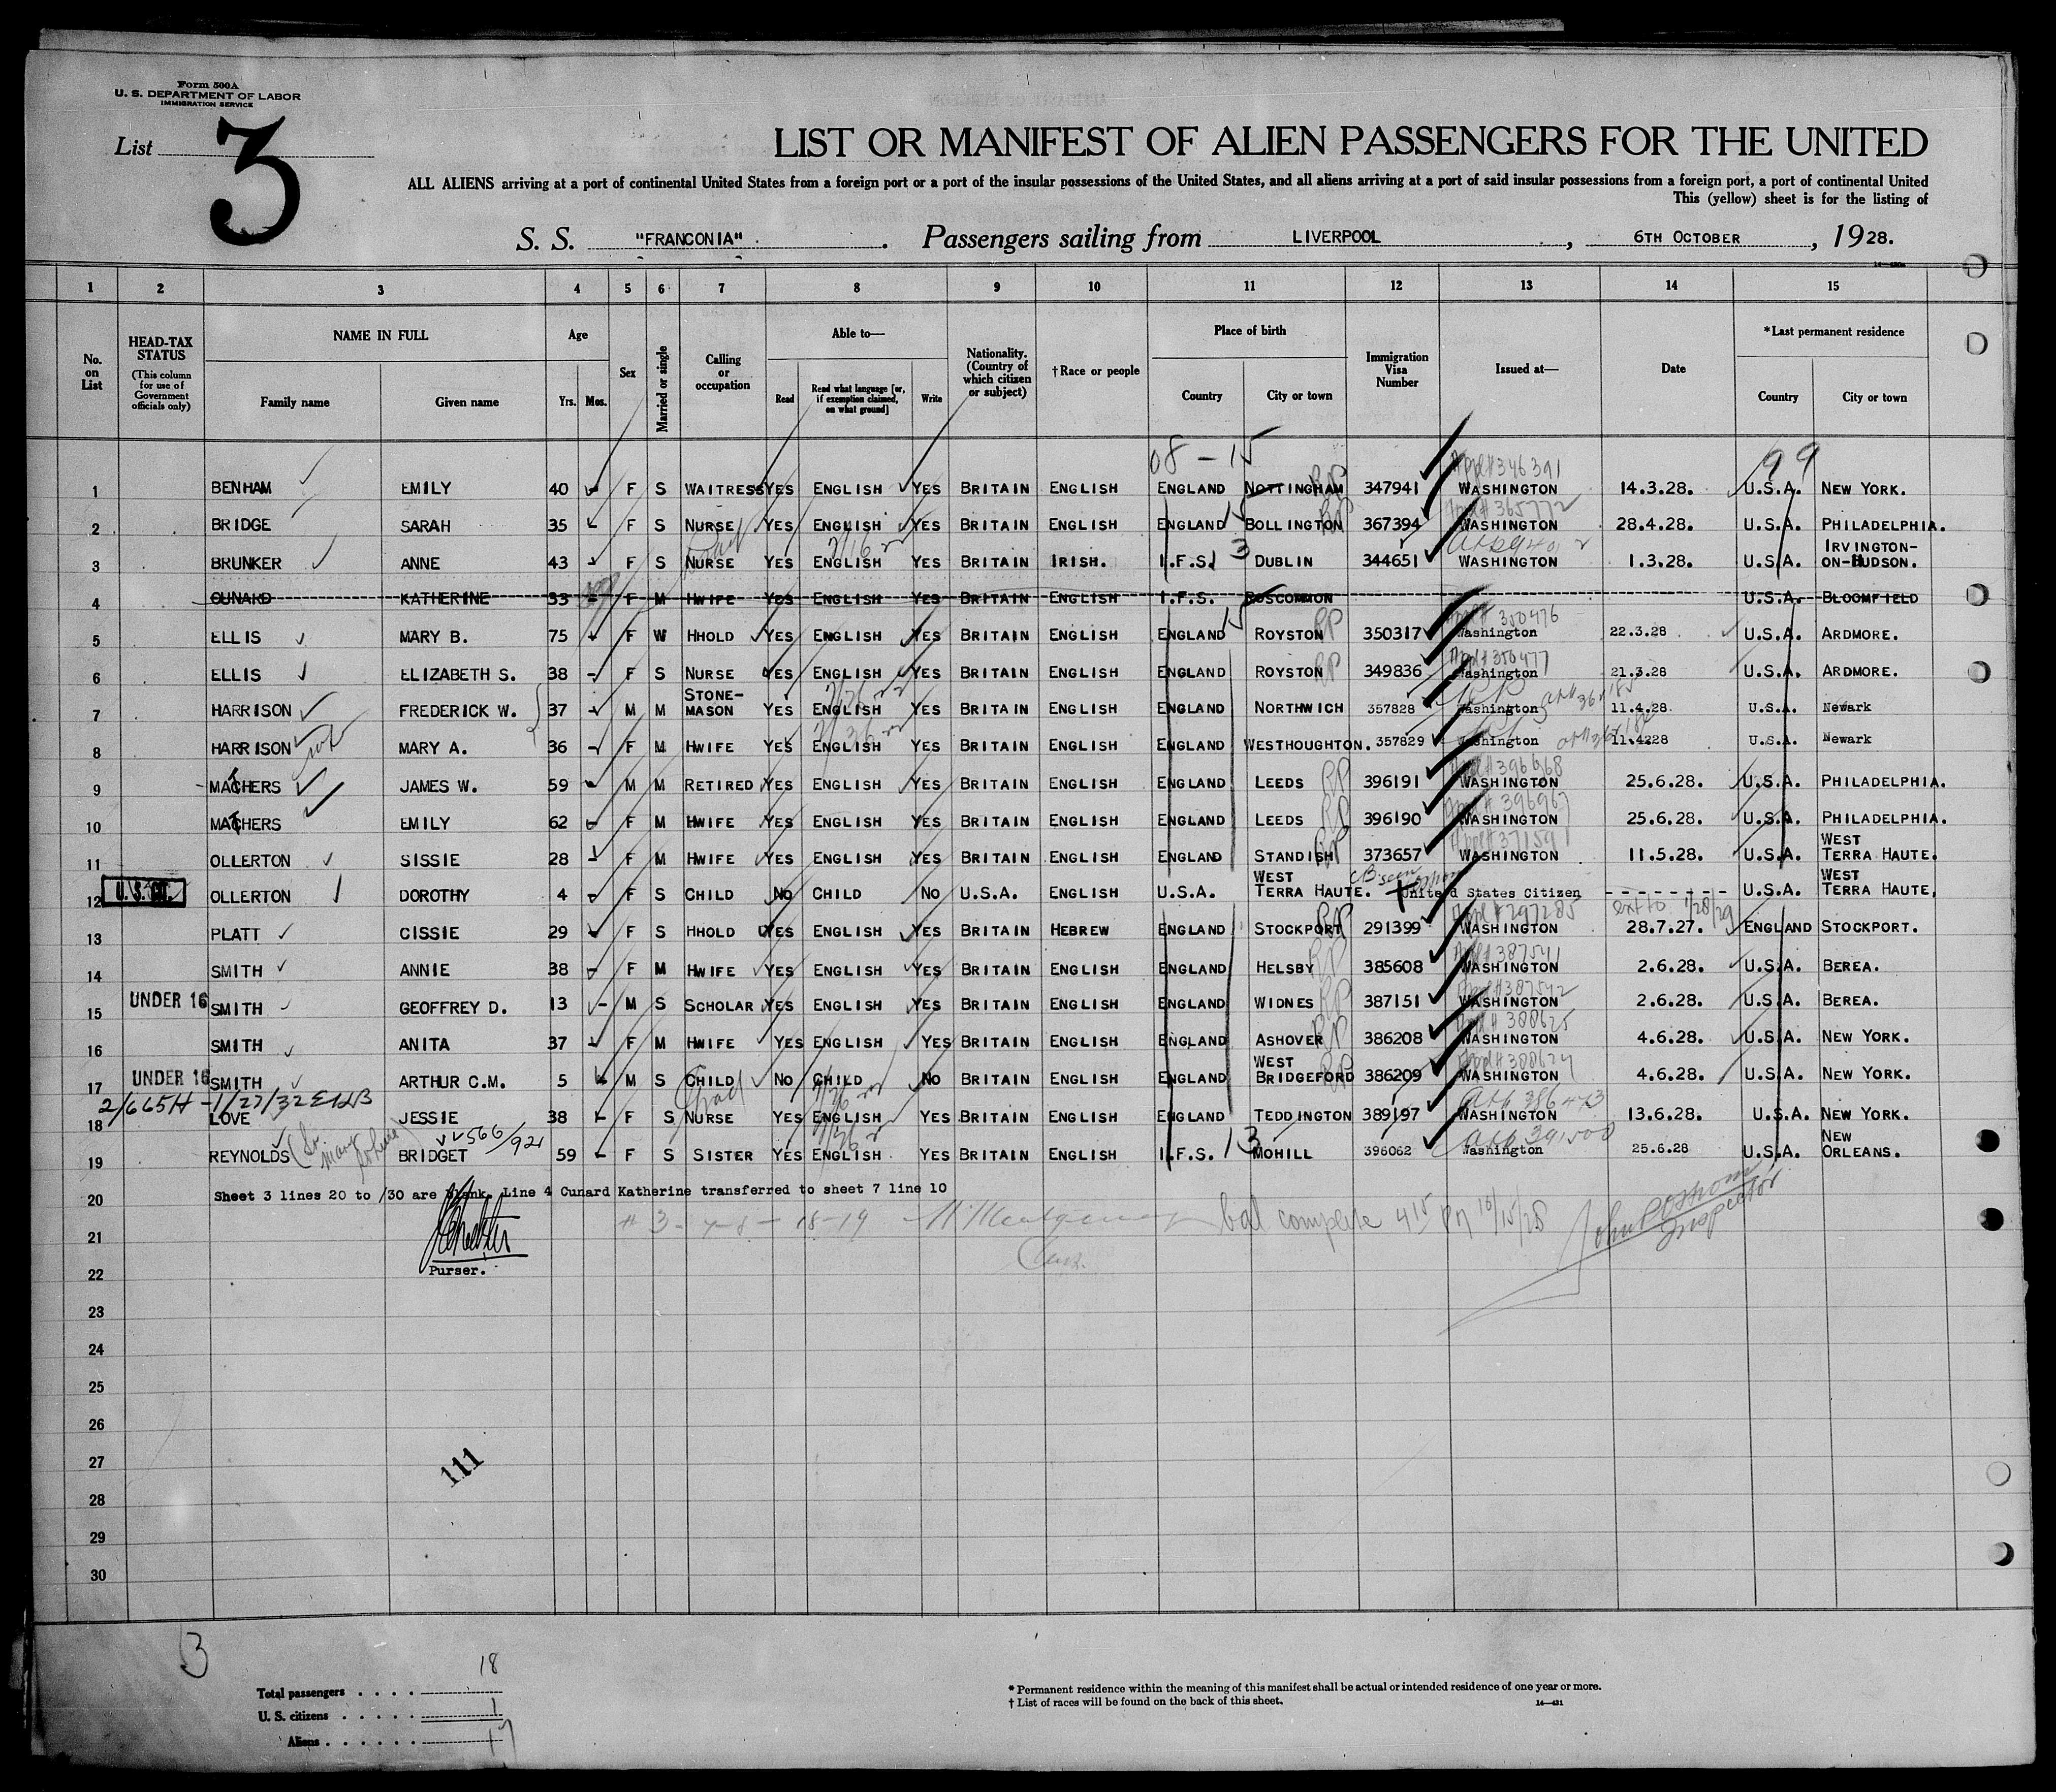 Form 500A
U. S. DEPARTMENT OF LABOR
IMMIGRATION SERVICE
List 3
LIST OR MANIFEST OF ALIEN PASSENGERS FOR THE UNITED
ALL ALIENS arriving at a port of continental United States from a foreign port or a port of the insular possessions of the United States, and all aliens arriving at a port of said insular possessions from a foreign port, a port of continental United
This (yellow) sheet is for the listing of
S. S. "FRANCONIA". Passengers sailing from LIVERPOOL, 6TH OCTOBER, 1928.
1 2 3 4 5 6 7 8 9 10 11 12 13 14 15
No. on List
HEAD-TAX STATUS (This column for use of Government officials only)
NAME IN FULL Family name Given name
Age Yrs. Mos.
Sex
Married or single
Calling or occupation
Able to— Read Read what language [or, if exemption claimed, on what ground] Write
Nationality. (Country of which citizen or subject)
†Race or people
Place of birth Country City or town
Immigration Visa Number
Issued at—
Date
*Last permanent residence Country City or town
08 - 15 99
1 BENHAM EMILY 40 - F S WAITRESS YES ENGLISH YES BRITAIN ENGLISH ENGLAND NOTTINGHAM 347941 WASHINGTON 14.3.28. U.S.A. NEW YORK.
2 BRIDGE SARAH 35 - F S NURSE YES ENGLISH YES BRITAIN ENGLISH ENGLAND BOLLINGTON 367394 WASHINGTON 28.4.28. U.S.A. PHILADELPHIA.
3 BRUNKER ANNE 43 - F S NURSE YES ENGLISH YES BRITAIN IRISH. I.F.S. 3 DUBLIN 344651 WASHINGTON 1.3.28. U.S.A. IRVINGTON-ON-HUDSON.
4 CUNARD KATHERINE 33 - F M HWIFE YES ENGLISH YES BRITAIN ENGLISH I.F.S. ROSCOMMON U.S.A. BLOOMFIELD
5 ELLIS MARY B. 75 - F W HHOLD YES ENGLISH YES BRITAIN ENGLISH ENGLAND 15 ROYSTON 350317 Washington 22.3.28 U.S.A. ARDMORE.
6 ELLIS ELIZABETH S. 38 - F S NURSE YES ENGLISH YES BRITAIN ENGLISH ENGLAND ROYSTON 349836 Washington 21.3.28 U.S.A. ARDMORE.
7 HARRISON FREDERICK W. 37 - M M STONE-MASON YES ENGLISH YES BRITAIN ENGLISH ENGLAND NORTHWICH 357828 Washington 11.4.28 U.S.A. Newark
8 HARRISON MARY A. 36 - F M HWIFE YES ENGLISH YES BRITAIN ENGLISH ENGLAND WESTHOUGHTON. 357829 Washington 11.4228 U.S.A. Newark
9 MATHERS JAMES W. 59 - M M RETIRED YES ENGLISH YES BRITAIN ENGLISH ENGLAND LEEDS 396191 WASHINGTON 25.6.28. U.S.A. PHILADELPHIA.
10 MATHERS EMILY 62 - F M HWIFE YES ENGLISH YES BRITAIN ENGLISH ENGLAND LEEDS 396190 WASHINGTON 25.6.28. U.S.A. PHILADELPHIA.
11 OLLERTON SISSIE 28 - F M HWIFE YES ENGLISH YES BRITAIN ENGLISH ENGLAND STANDISH 373657 WASHINGTON 11.5.28. U.S.A. WEST TERRA HAUTE.
12 U.S.CIT. OLLERTON DOROTHY 4 - F S CHILD NO CHILD NO U.S.A. ENGLISH U.S.A. WEST TERRA HAUTE. United States Citizen - - - - - - - - U.S.A. WEST TERRA HAUTE,
ext to 1/28/29
13 PLATT CISSIE 29 - F S HHOLD YES ENGLISH YES BRITAIN HEBREW ENGLAND STOCKPORT 291399 WASHINGTON 28.7.27. ENGLAND STOCKPORT.
14 SMITH ANNIE 38 - F M HWIFE YES ENGLISH YES BRITAIN ENGLISH ENGLAND HELSBY 385608 WASHINGTON 2.6.28. U.S.A. BEREA.
15 UNDER 16 SMITH GEOFFREY D. 13 - M S SCHOLAR YES ENGLISH YES BRITAIN ENGLISH ENGLAND WIDNES 387151 WASHINGTON 2.6.28. U.S.A. BEREA.
16 SMITH ANITA 37 - F M HWIFE YES ENGLISH YES BRITAIN ENGLISH ENGLAND ASHOVER 386208 WASHINGTON 4.6.28. U.S.A. NEW YORK.
17 UNDER 16 SMITH ARTHUR C.M. 5 - M S CHILD NO CHILD NO BRITAIN ENGLISH ENGLAND WEST BRIDGEFORD 386209 WASHINGTON 4.6.28. U.S.A. NEW YORK.
18 LOVE JESSIE 38 - F S NURSE YES ENGLISH YES BRITAIN ENGLISH ENGLAND TEDDINGTON 389197 WASHINGTON 13.6.28. U.S.A. NEW YORK.
19 REYNOLDS BRIDGET 59 - F S SISTER YES ENGLISH YES BRITAIN ENGLISH I.F.S. 13 MOHILL 396062 Washington 25.6.28 U.S.A. NEW ORLEANS.
20 Sheet 3 lines 20 to /30 are blank. Line 4 Cunard Katherine transferred to sheet 7 line 10
# 3 - 7-8 - 18-19 bal complete 4 15 PM 10/15/28 Inspector
21
Purser.
22
23
24
25
26
27
28
29
30
111
3
Total passengers . . . . 18
U. S. citizens . . . . . 1
Aliens . . . . . . 17
* Permanent residence within the meaning of this manifest shall be actual or intended residence of one year or more.
† List of races will be found on the back of this sheet. 14—431